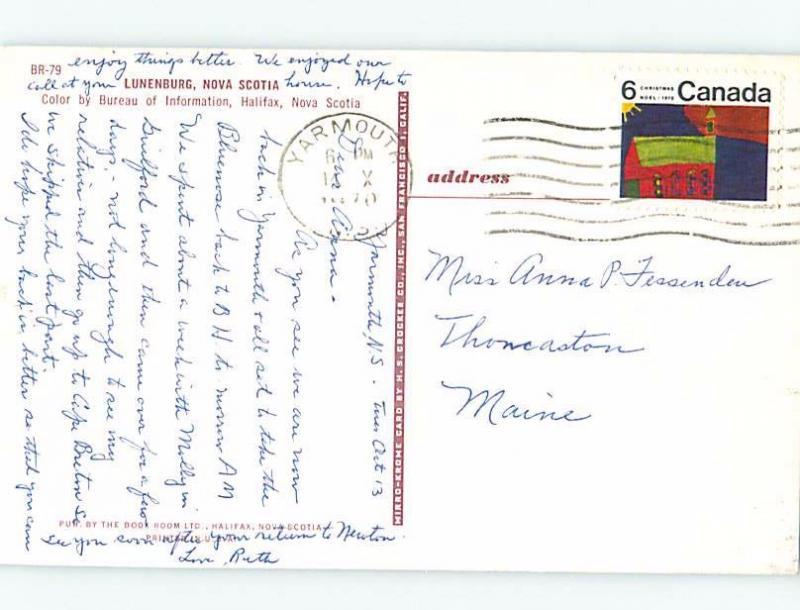 BR-79
LUNENBURG, NOVA SCOTIA
Color by Bureau of Information, Halifax, Nova Scotia
Yarmouth, N.S. Tues Oct 13
Dear Anna -
As you see we are now
back in Yarmouth & all set to take the
Bluenose back to B H to morrow AM
We spent about a week with Molly in
Guilford and then came over for a few
days - not long enough to see my
relatives and then go up to Cape Breton So
we skipped the last part.
I do hope your back is better so that you can
enjoy things better. We enjoyed our
call at your house. Hope to
see you soon after your return to Newton.
Love, Ruth
PUB. BY THE BOOK ROOM LTD., HALIFAX, NOVA SCOTIA
PRINTED IN U.S.A.
MIRRO-KROME CARD BY H. S. CROCKER CO., INC., SAN FRANCISCO 1, CALIF.
YARMOUTH
PM
address
6 CHRISTMAS NOEL 1970 Canada
Miss Anna P. Fessenden
Thomcaston
Maine